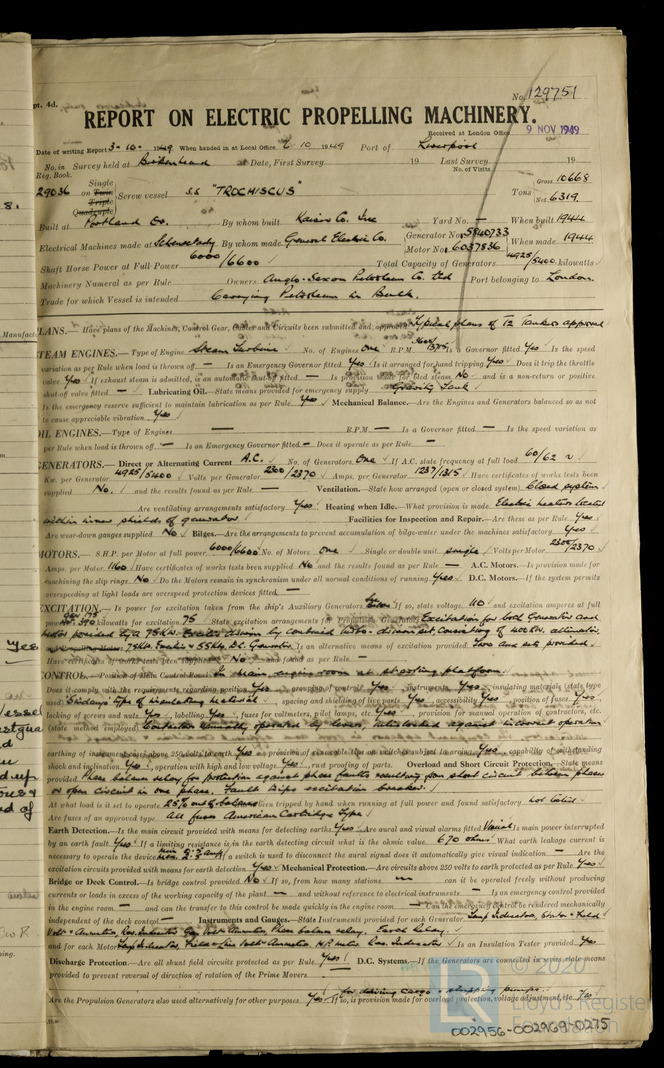 pt. 4d.
No. 129751
REPORT ON ELECTRIC PROPELLING MACHINERY.
Received at London Office 9 NOV 1949
Date of writing Report 3-10-1949 When handed in at Local Office 10 1949 Port of Liverpool
No. in Survey held at Birkenhead Date, First Survey 19 Last Survey 19
Reg. Book. No. of Visits
29036 on Single Twin Triple Quadruple Screw vessel S.S. "TROCHISCUS" Tons Gross 10668 Net 6319
Built at Portland Or. By whom built Kaiser Co. Inc Yard No. — When built 1944
Electrical Machines made at Schenectady By whom made General Electric Co. Generator No. 5840733 Motor No. 6037836 When made 1944
Shaft Horse Power at Full Power 6000/6600 Total Capacity of Generators 4925/5400 kilowatts
Machinery Numeral as per Rule Owners Anglo-Saxon Petroleum Co. Ltd Port belonging to London
Trade for which Vessel is intended Carrying Petroleum in Bulk.
LANS.— Have plans of the Machines, Control Gear, Cables and Circuits been submitted and approved Typical plans of T2 Tankers approved
STEAM ENGINES.—Type of Engine Steam Turbine No. of Engines One R.P.M. is a Governor fitted Yes Is the speed
variation as per Rule when load is thrown off — Is an Emergency Governor fitted Yes Is it arranged for hand tripping Yes Does it trip the throttle
valve Yes If exhaust steam is admitted, is an automatic shut-off fitted — Is provision made for bled steam No and is a non-return or positive
shut-off valve fitted — Lubricating Oil.—State means provided for emergency supply Gravity Tank
Is the emergency reserve sufficient to maintain lubrication as per Rule Yes Mechanical Balance.—Are the Engines and Generators balanced so as not
to cause appreciable vibration Yes
OIL ENGINES.—Type of Engines — R.P.M — Is a Governor fitted — Is the speed variation as
per Rule when load is thrown off — Is an Emergency Governor fitted — Does it operate as per Rule —
GENERATORS.—Direct or Alternating Current A.C. No. of Generators One If A.C. state frequency at full load 60/62
Kw. per Generator 4925/5400 Volts per Generator 2300/2370 Amps. per Generator 1237/1315 Have certificates of works tests been
supplied No. and the results found as per Rule — Ventilation.—State how arranged (open or closed system) Closed system
Are ventilating arrangements satisfactory Yes Heating when Idle.—What provision is made Electric heaters located
within inner shields of generator Facilities for Inspection and Repair.—Are these as per Rule Yes
Are wear-down gauges supplied No Bilges.—Are the arrangements to prevent accumulation of bilge-water under the machines satisfactory Yes
MOTORS.—S.H.P. per Motor at full power 6000/6600 No. of Motors One Single or double unit single Volts per Motor 2300/2370
Amps. per Motor 1160 Have certificates of works tests been supplied No and the results found as per Rule — A.C. Motors.—Is provision made for
machining the slip rings No Do the Motors remain in synchronism under all normal conditions of running Yes D.C. Motors.—If the system permits
overspeeding at light loads are overspeed protection devices fitted —
EXCITATION.—Is power for excitation taken from the ship's Auxiliary Generators If so, state voltage 110 and excitation amperes at full
kilowatts for excitation 75 State excitation arrangements for Excitation for both Generator and
Have certificates of works tests been supplied No and found as per Rule —
CONTROL.—Position of Main Control Panel In main engine room at starting platform
Does it comply with the requirements regarding position Yes grouping of controls Yes instruments Yes insulating materials (state type
spacing and shielding of live parts Yes accessibility Yes position of fuses Yes
locking of screws and nuts Yes labelling Yes fuses for voltmeters, pilot lamps, etc. Yes provision for manual operation of contactors, etc.
(state method employed) Contactors manually operated by levers, interlocked against incorrect operation
earthing of instrument cases above 250 volts to earth Yes is provision accessible like on switch subject to arcing Yes capability of withstanding
shock and inclination Yes operation with high and low voltage Yes rust proofing of parts. Overload and Short Circuit Protection.—State means
provided Phase balance relay for protection against phase faults resulting from short circuit between phases
or open circuit in one phase. Fault trips excitation breaker.
At what load is it set to operate 25% out of balance been tripped by hand when running at full power and found satisfactory
Are fuses of an approved type. All fuses American Cartridge Type
Earth Detection.—Is the main circuit provided with means for detecting earths Yes Are aural and visual alarms fitted Visual Is main power interrupted
by an earth fault. Yes If a limiting resistance is in the earth detecting circuit what is the ohmic value 670 ohms What earth leakage current is
necessary to operate the device if a switch is used to disconnect the aural signal does it automatically give visual indication — Are the
excitation circuits provided with means for earth detection Yes Mechanical Protection.—Are circuits above 250 volts to earth protected as per Rule. Yes
Bridge or Deck Control.—Is bridge control provided. No If so, from how many stations — can it be operated freely without producing
currents or loads in excess of the working capacity of the plant — and without reference to electrical instruments — Is an emergency control provided
in the engine room — and can the transfer to this control be made quickly in the engine room — Can the emergency control be rendered mechanically
independent of the deck control — Instruments and Gauges.—State Instruments provided for each Generator Temp Indicator, Stator & Field
and for each Motor Is an Insulation Tester provided Yes
Discharge Protection.—Are all shunt field circuits protected as per Rule. Yes D.C. Systems.—If the Generators are connected in series state means
provided to prevent reversal of direction of rotation of the Prime Movers —
Are the Propulsion Generators also used alternatively for other purposes. Yes for driving cargo & stripping pumps. If so, is provision made for overload protection, voltage adjustment, etc. Yes
LR © 2020
Lloyd's Register
Foundation
002956-002969-0275